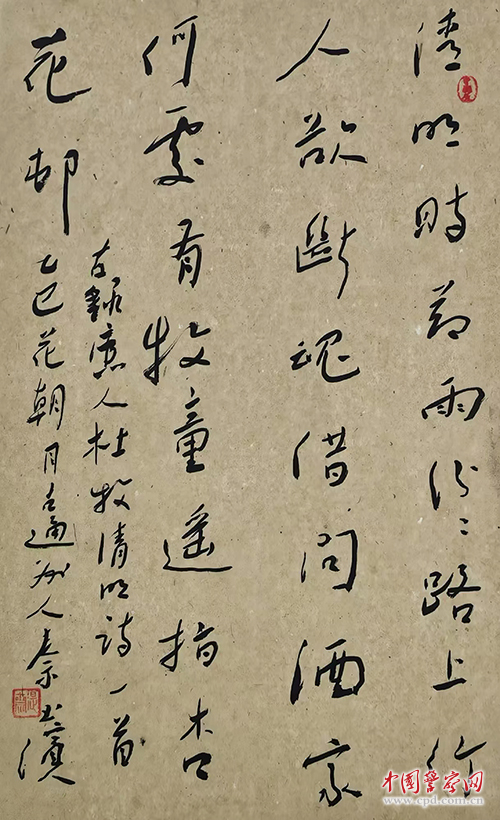 清明時節雨紛〻路上行
人欲斷魂借問酒家
何處有牧童遙指杏
花邨
右錄唐人杜牧清明詩一首
乙巳花朝月通州人秦
中国警察网
www.cpd.com.cn